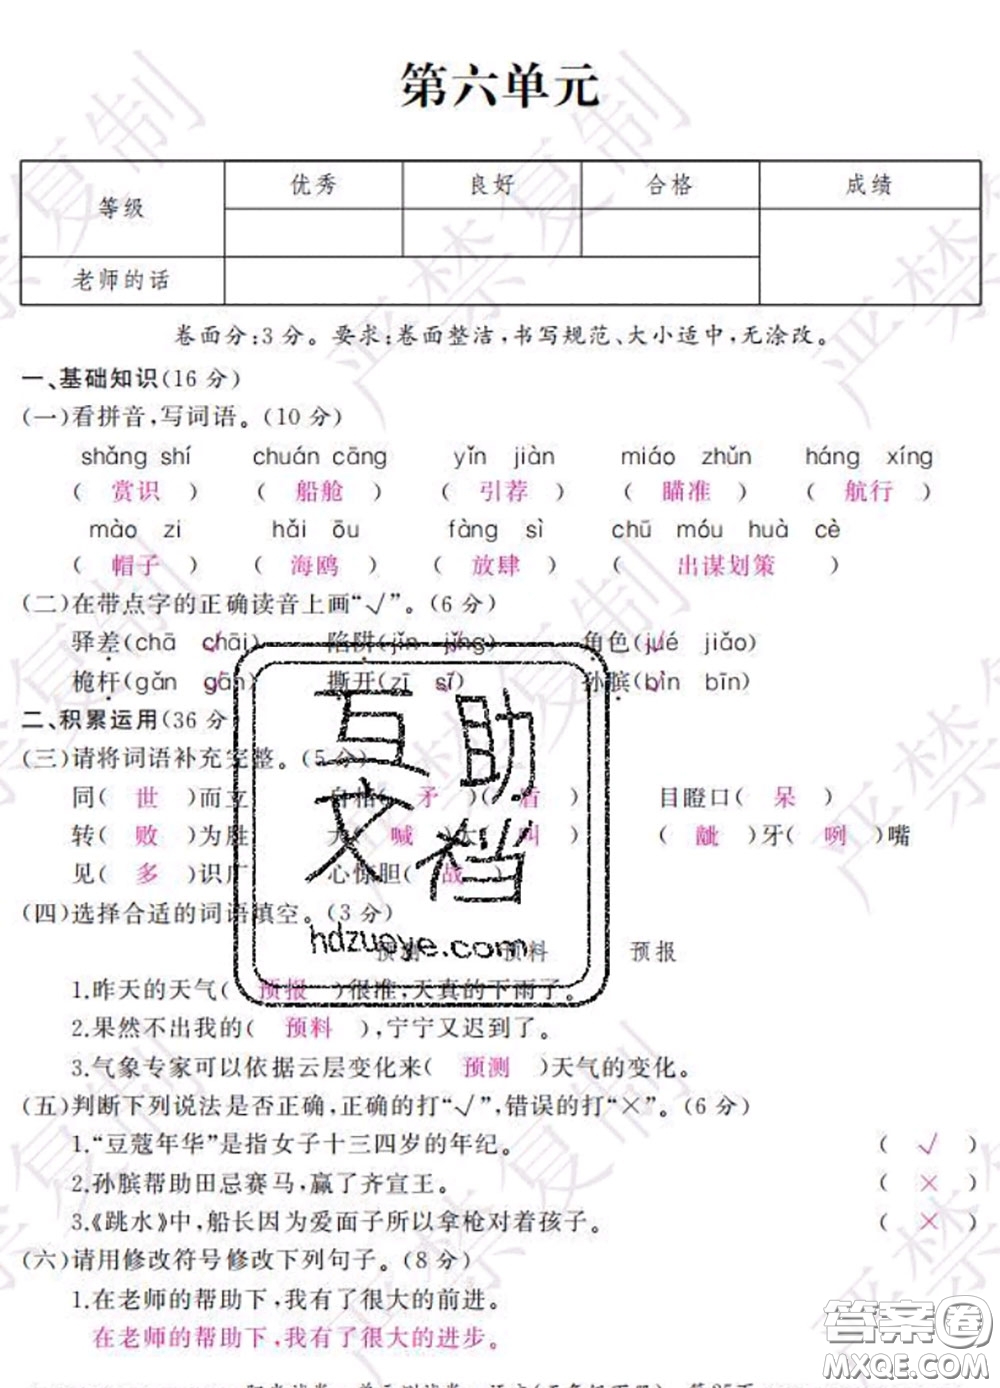 第六单元
等级 优秀 良好 合格 成绩
老师的话
卷面分:3分。要求:卷面整洁,书写规范、大小适中,无涂改。
一、基础知识(16分)
(一)看拼音,写词语。(10分)
shǎng shí chuán cāng yǐn jiàn miáo zhǔn háng xíng
( 赏识 ) ( 船舱 ) ( 引荐 ) ( 瞄准 ) ( 航行 )
mào zi hǎi ōu fàng sì chū móu huà cè
( 帽子 ) ( 海鸥 ) ( 放肆 ) ( 出谋划策 )
(二)在带点字的正确读音上画“√”。(6分)
驿差(chā chāi) 陷阱(jǐn jǐng) 角色(jué jiǎo)
桅杆(gǎn gān) 撕开(zī sī) 孙膑(bìn bīn)
二、积累运用(36分
(三)请将词语补充完整。(5分)
同( 世 )而立 自相( 矛 )( 盾 ) 目瞪口( 呆 )
转( 败 )为胜 大( 喊 )大( 叫 ) ( 龇 )牙( 咧 )嘴
见( 多 )识广 心惊胆( 战 )
(四)选择合适的词语填空。(3分)
预测 预料 预报
1.昨天的天气( 预报 )很准,天真的下雨了。
2.果然不出我的( 预料 ),宁宁又迟到了。
3.气象专家可以依据云层变化来( 预测 )天气的变化。
(五)判断下列说法是否正确,正确的打“√”,错误的打“×”。(6分)
1.“豆蔻年华”是指女子十三四岁的年纪。 ( √ )
2.孙膑帮助田忌赛马,赢了齐宣王。 ( × )
3.《跳水》中,船长因为爱面子所以拿枪对着孩子。 ( × )
(六)请用修改符号修改下列句子。(8分)
1.在老师的帮助下,我有了很大的前进。
在老师的帮助下,我有了很大的进步。
互助
文档
hdzuoye.com
答案圈
MXQE.COM
严禁复制